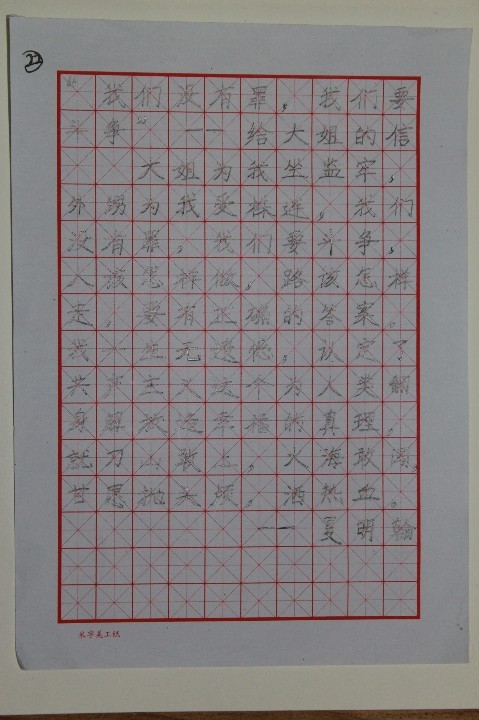 22
“我们没有罪，我们要
斗争”——给大姐的信
大姐为我坐监牢，
外甥为我受株连，我们
没有罪，我们要斗争，
人该怎样做，路该怎样
走，要有正确的答案。
我一生无遗憾，认定了
共产主义这个为人类翻
身解放造幸福的真理，
就刀山敢上，火海敢闯，
甘愿抛头颅，洒热血。
——夏明翰
米字美工纸